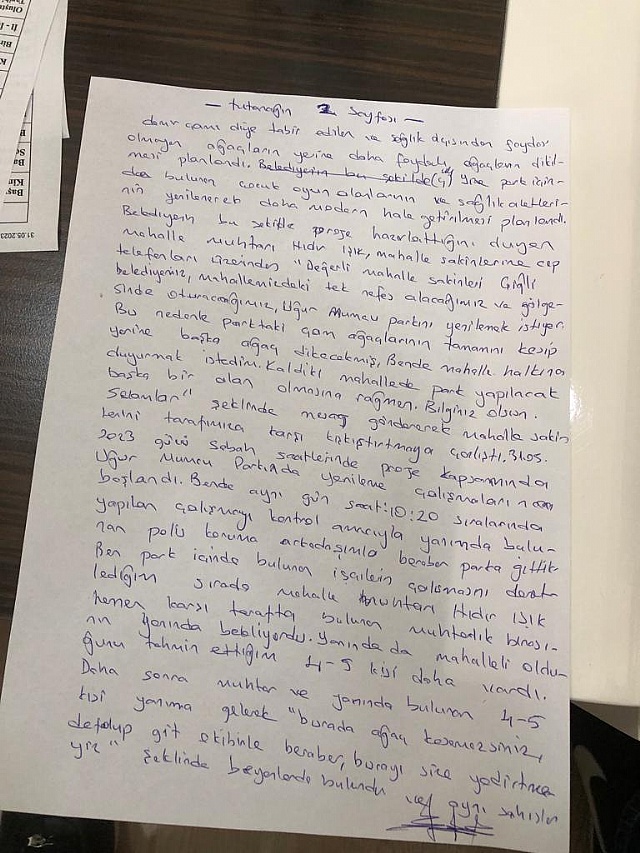 — tutanağın 2 sayfası —
demir çamı diye tabir edilen ve sağlık açısından faydası
olmayan ağaçların yerine daha faydalı ağaçların dikil-
mesi planlandı. Belediyenin bu şekilde Yine park için-
de bulunan çocuk oyun alanlarının ve sağlık aletleri-
nin yenilenerek daha modern hale getirilmesi planlandı.
Belediyenin bu şekilde proje hazırlattığını duyan
mahalle muhtarı Hıdır Işık, mahalle sakinlerine cep
telefonları üzerinden "Değerli mahalle sakinleri Çiğli
belediyemiz, mahallemizdeki tek nefes alacağımız ve gölge-
sinde oturacağımız, Uğur Mumcu parkını yenilemek istiyor.
Bu nedenle parktaki çam ağaçlarının tamamını kesip
yerine başka ağaç dikecekmiş, Bende mahalle halkına
duyurmak istedim. Kaldıki mahallede park yapılacak
başka bir alan olmasına rağmen. Bilginiz olsun.
Selamlar" şeklinde mesaj göndererek mahalle sakin
lerini tarafımıza karşı kışkırtmaya çalıştı. 31.05.
2023 günü sabah saatlerinde proje kapsamında
Uğur Mumcu Parkında yenileme çalışmaları
başlandı. Bende aynı gün saat: 10:20 sıralarında
yapılan çalışmayı kontrol amacıyla yanımda bulu-
nan polis koruma arkadaşımla beraber parka gittik
Ben park içinde bulunan işçilerin çalışmasını denet-
lediğim sırada mahalle muhtarı Hıdır IŞIK
hemen karşı tarafta bulunan muhtarlık binası-
nın yanında bekliyordu. Yanında da mahalleli oldu-
ğunu tahmin ettiğim 4-5 kişi daha vardı.
Daha sonra muhtar ve yanında bulunan 4-5
kişi yanıma gelerek "burada ağaç kesemezsiniz,
defolup git ekibinle beraber, burayı size yaptırtmca
yız" şeklinde beyanlarda bulundu ve aynı şahıslar